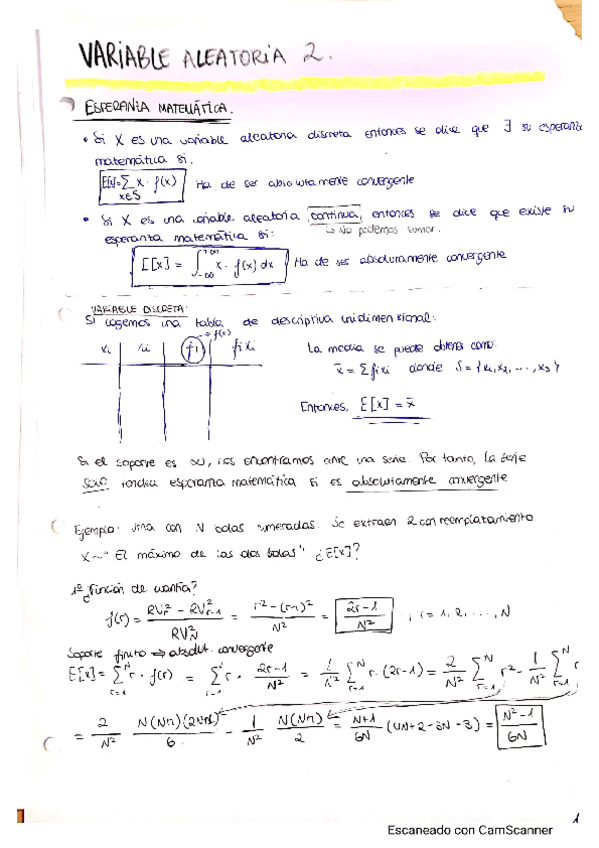 VARIABLE ALEATORIA 2.
ESPERANZA MATEMÁTICA.
• Si X es una variable aleatoria discreta entonces se dice que ∃ su esperanza
matemática si.
E[x]=∑ x · f(x) Ha de ser absolutamente convergente
x∈S
• Si X es una variable aleatoria continua, entonces se dice que existe su
esperanza matemática si: ↳ No podemos sumar.
E[x] = ∫_{-∞}^{+∞} x · f(x) dx Ha de ser absolutamente convergente
VARIABLE DISCRETA:
Si cogemos una tabla de descriptiva unidimensional:
→ f(x)
xi ni fi fixi
La media se puede obtener como:
x̄ = ∑fixi donde S = {x1, x2, ..., xs}
Entonces, E[x] = x̄
Si el soporte es ∞, nos encontramos ante una serie. Por tanto, la serie
solo tendrá esperanza matemática si es absolutamente convergente
Ejemplo: Urna con N bolas numeradas. Se extraen 2 con reemplazamiento
X~ "El máximo de las dos bolas" ¿E[x]?
1º ¿Función de cuantía?
f(r) = (RV_r^2 - RV_{r-1}^2) / RV_N^2 = (r^2 - (r-1)^2) / N^2 = (2r-1) / N^2 ; r = 1, 2, ..., N
Soporte finito ⇒ absolut. convergente
E[x] = ∑_{r=1}^N r · f(r) = ∑_{r=1}^N r · (2r-1)/N^2 = 1/N^2 ∑_{r=1}^N r · (2r-1) = 2/N^2 ∑_{r=1}^N r^2 - 1/N^2 ∑_{r=1}^N r
= 2/N^2 N(N+1)(2N+1)/6 - 1/N^2 N(N+1)/2 = (N+1)/6N (4N+2-3N-3) = (N^2-1)/6N
1
Escaneado con CamScanner